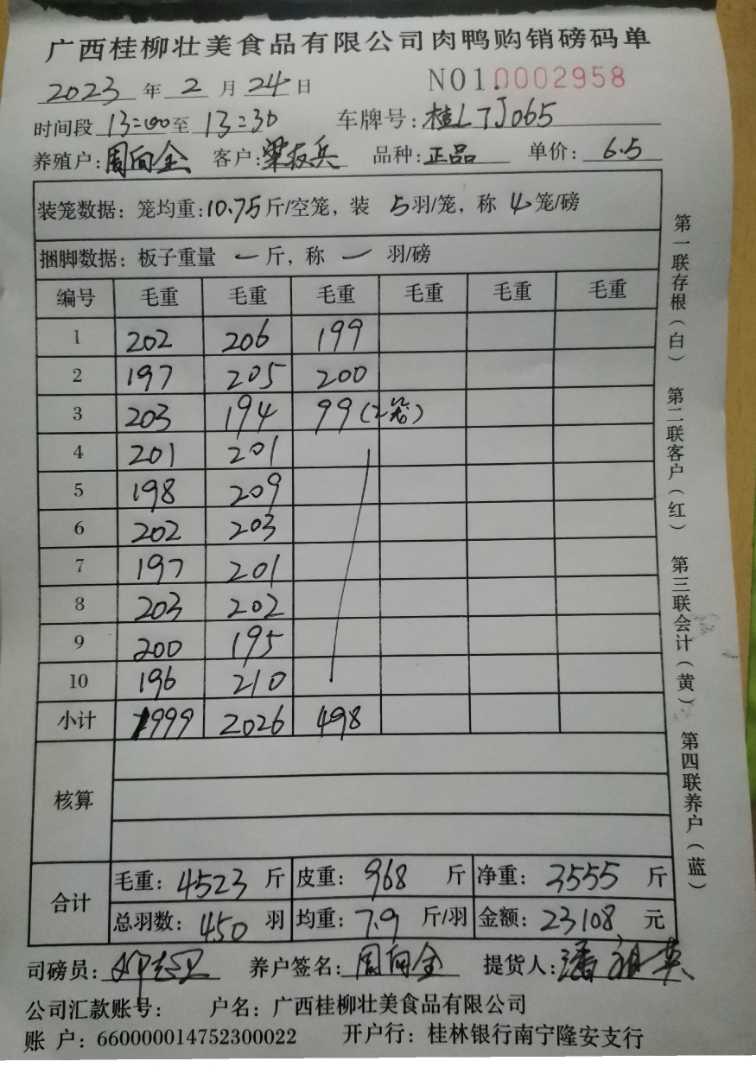 广西桂柳壮美食品有限公司肉鸭购销磅码单
2023 年 2 月 24 日 NO1.0002958
时间段 13:00 至 13:30 车牌号: 桂L7J065
养殖户: 周向全 客户: 梁板兵 品种: 正品 单价: 6.5
装笼数据: 笼均重: 10.75 斤/空笼, 装 5 羽/笼, 称 4 笼/磅
捆脚数据: 板子重量 一 斤, 称 一 羽/磅
编号 毛重 毛重 毛重 毛重 毛重 毛重
1 202 206 199
2 197 205 200
3 203 194 99(2笼)
4 201 201
5 198 209
6 202 203
7 197 201
8 203 202
9 200 195
10 196 210
小计 1999 2026 498
核算
合计
毛重: 4523 斤 皮重: 968 斤 净重: 3555 斤
总羽数: 450 羽 均重: 7.9 斤/羽 金额: 23108 元
司磅员: 养户签名: 周向全 提货人: 潘祖英
公司汇款账号: 户名: 广西桂柳壮美食品有限公司
账 户: 660000014752300022 开户行: 桂林银行南宁隆安支行
第一联存根(白) 第二联客户(红) 第三联会计(黄) 第四联养户(蓝)